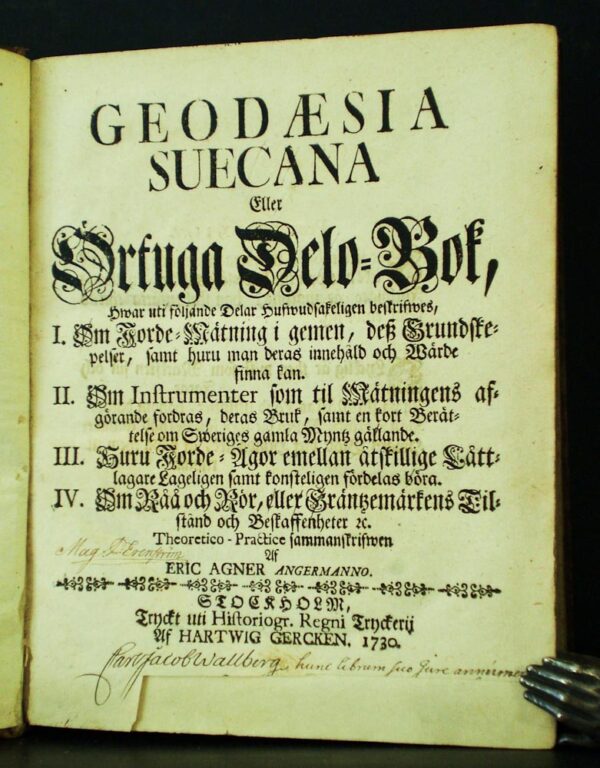 GEODÆSIA
SUECANA
Eller
Örtuga Delo-Bok,
Hwar uti följande Delar Hufwudsakeligen beskrifwes,
I. Om Jorde-Mätning i gemen, deß Grundske-
pelser, samt huru man deras innehåld och Wärde
finna kan.
II. Om Instrumenter som til Mätningens af-
görande fordras, deras Bruk, samt en kort Berät-
telse om Sweriges gamla Myntz gällande.
III. Huru Jorde-Ägor emellan åtskillige Lått-
lagare Lageligen samt konsteligen fördelas böra.
IV. Om Råå och Rör, eller Gräntzemärkens Til-
stånd och Beskaffenheter ꝛc.
Theoretico-Practice sammanskrifwen
Af
ERIC AGNER ANGERMANNO.
STOCKHOLM,
Tryckt uti Historiogr. Regni Tryckerij
Af HARTWIG GERCKEN. 1730.
Carl Jacob Wallberg, hunc librum suo jure